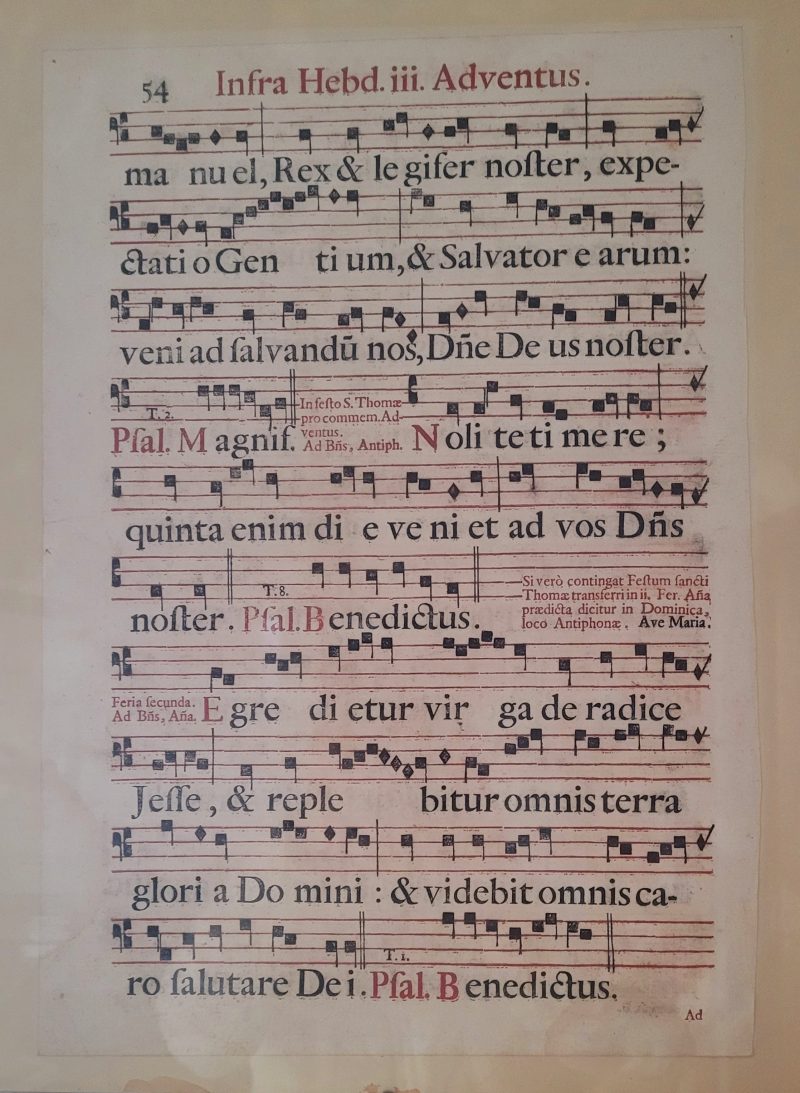 54 Infra Hebd. iii. Adventus.
ma nu el, Rex & le gifer noſter, expe-
ctati o Gen ti um, & Salvator e arum:
veni ad ſalvandū nos, Dñe De us noſter.
T. 2.
Pſal. M agnif. In feſto S. Thomæ
pro commem. Ad-
ventus.
Ad Bñs, Antiph. N oli te ti me re ;
quinta enim di e ve ni et ad vos Dñs
T. 8.
noſter. Pſal. B enedictus. Si verò contingat Feſtum ſancti
Thomæ transferri in ii. Fer. Aña
prædicta dicitur in Dominica,
loco Antiphonæ. Ave Maria.
Feria ſecunda.
Ad Bñs, Aña. E gre di etur vir ga de radice
Jeſſe, & reple bitur omnis terra
glori a Do mini : & videbit omnis ca-
T. 1.
ro ſalutare De i. Pſal. B enedictus.
Ad